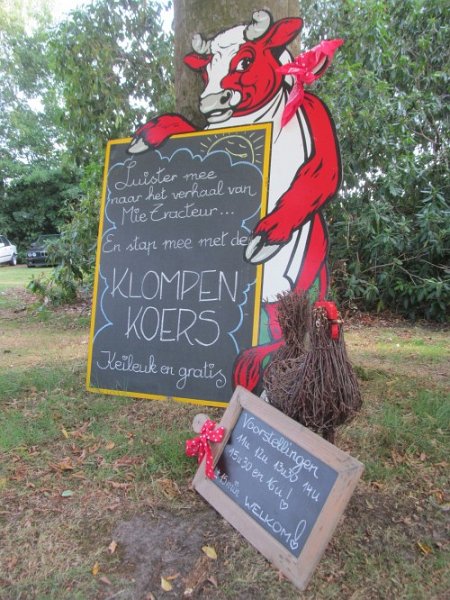 Luister mee
naar het verhaal van
Mie Tracteur...
En stap mee met de
KLOMPEN
KOERS
Keileuk en gratis
Voorstellingen
11u 12u 13u30 14u
15u30 en 16u!
WELKOM!